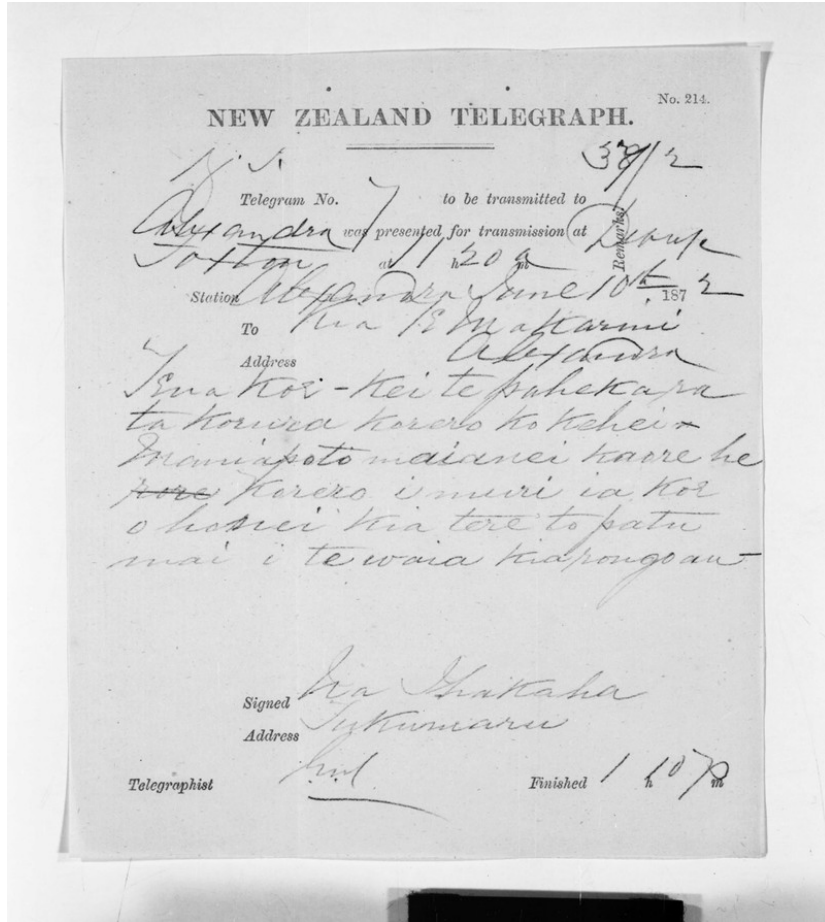 No. 214.
NEW ZEALAND TELEGRAPH.
38/2
Telegram No. 7 to be transmitted to
Alexandra was presented for transmission at
Foxton at 11 h 20 a m Remarks
Station Alexandra June 10th 1872
To Kia Te Makarini
Address Alexandra
Tena koe - kei te
ta korua korero ko
Maniapoto maianei kaore he
korero i muri ia koe
kia tere to patu
mai i te waia kia rongo au -
Signed Na
Address Tukumaru
Telegraphist Finished 1 h 10 p m